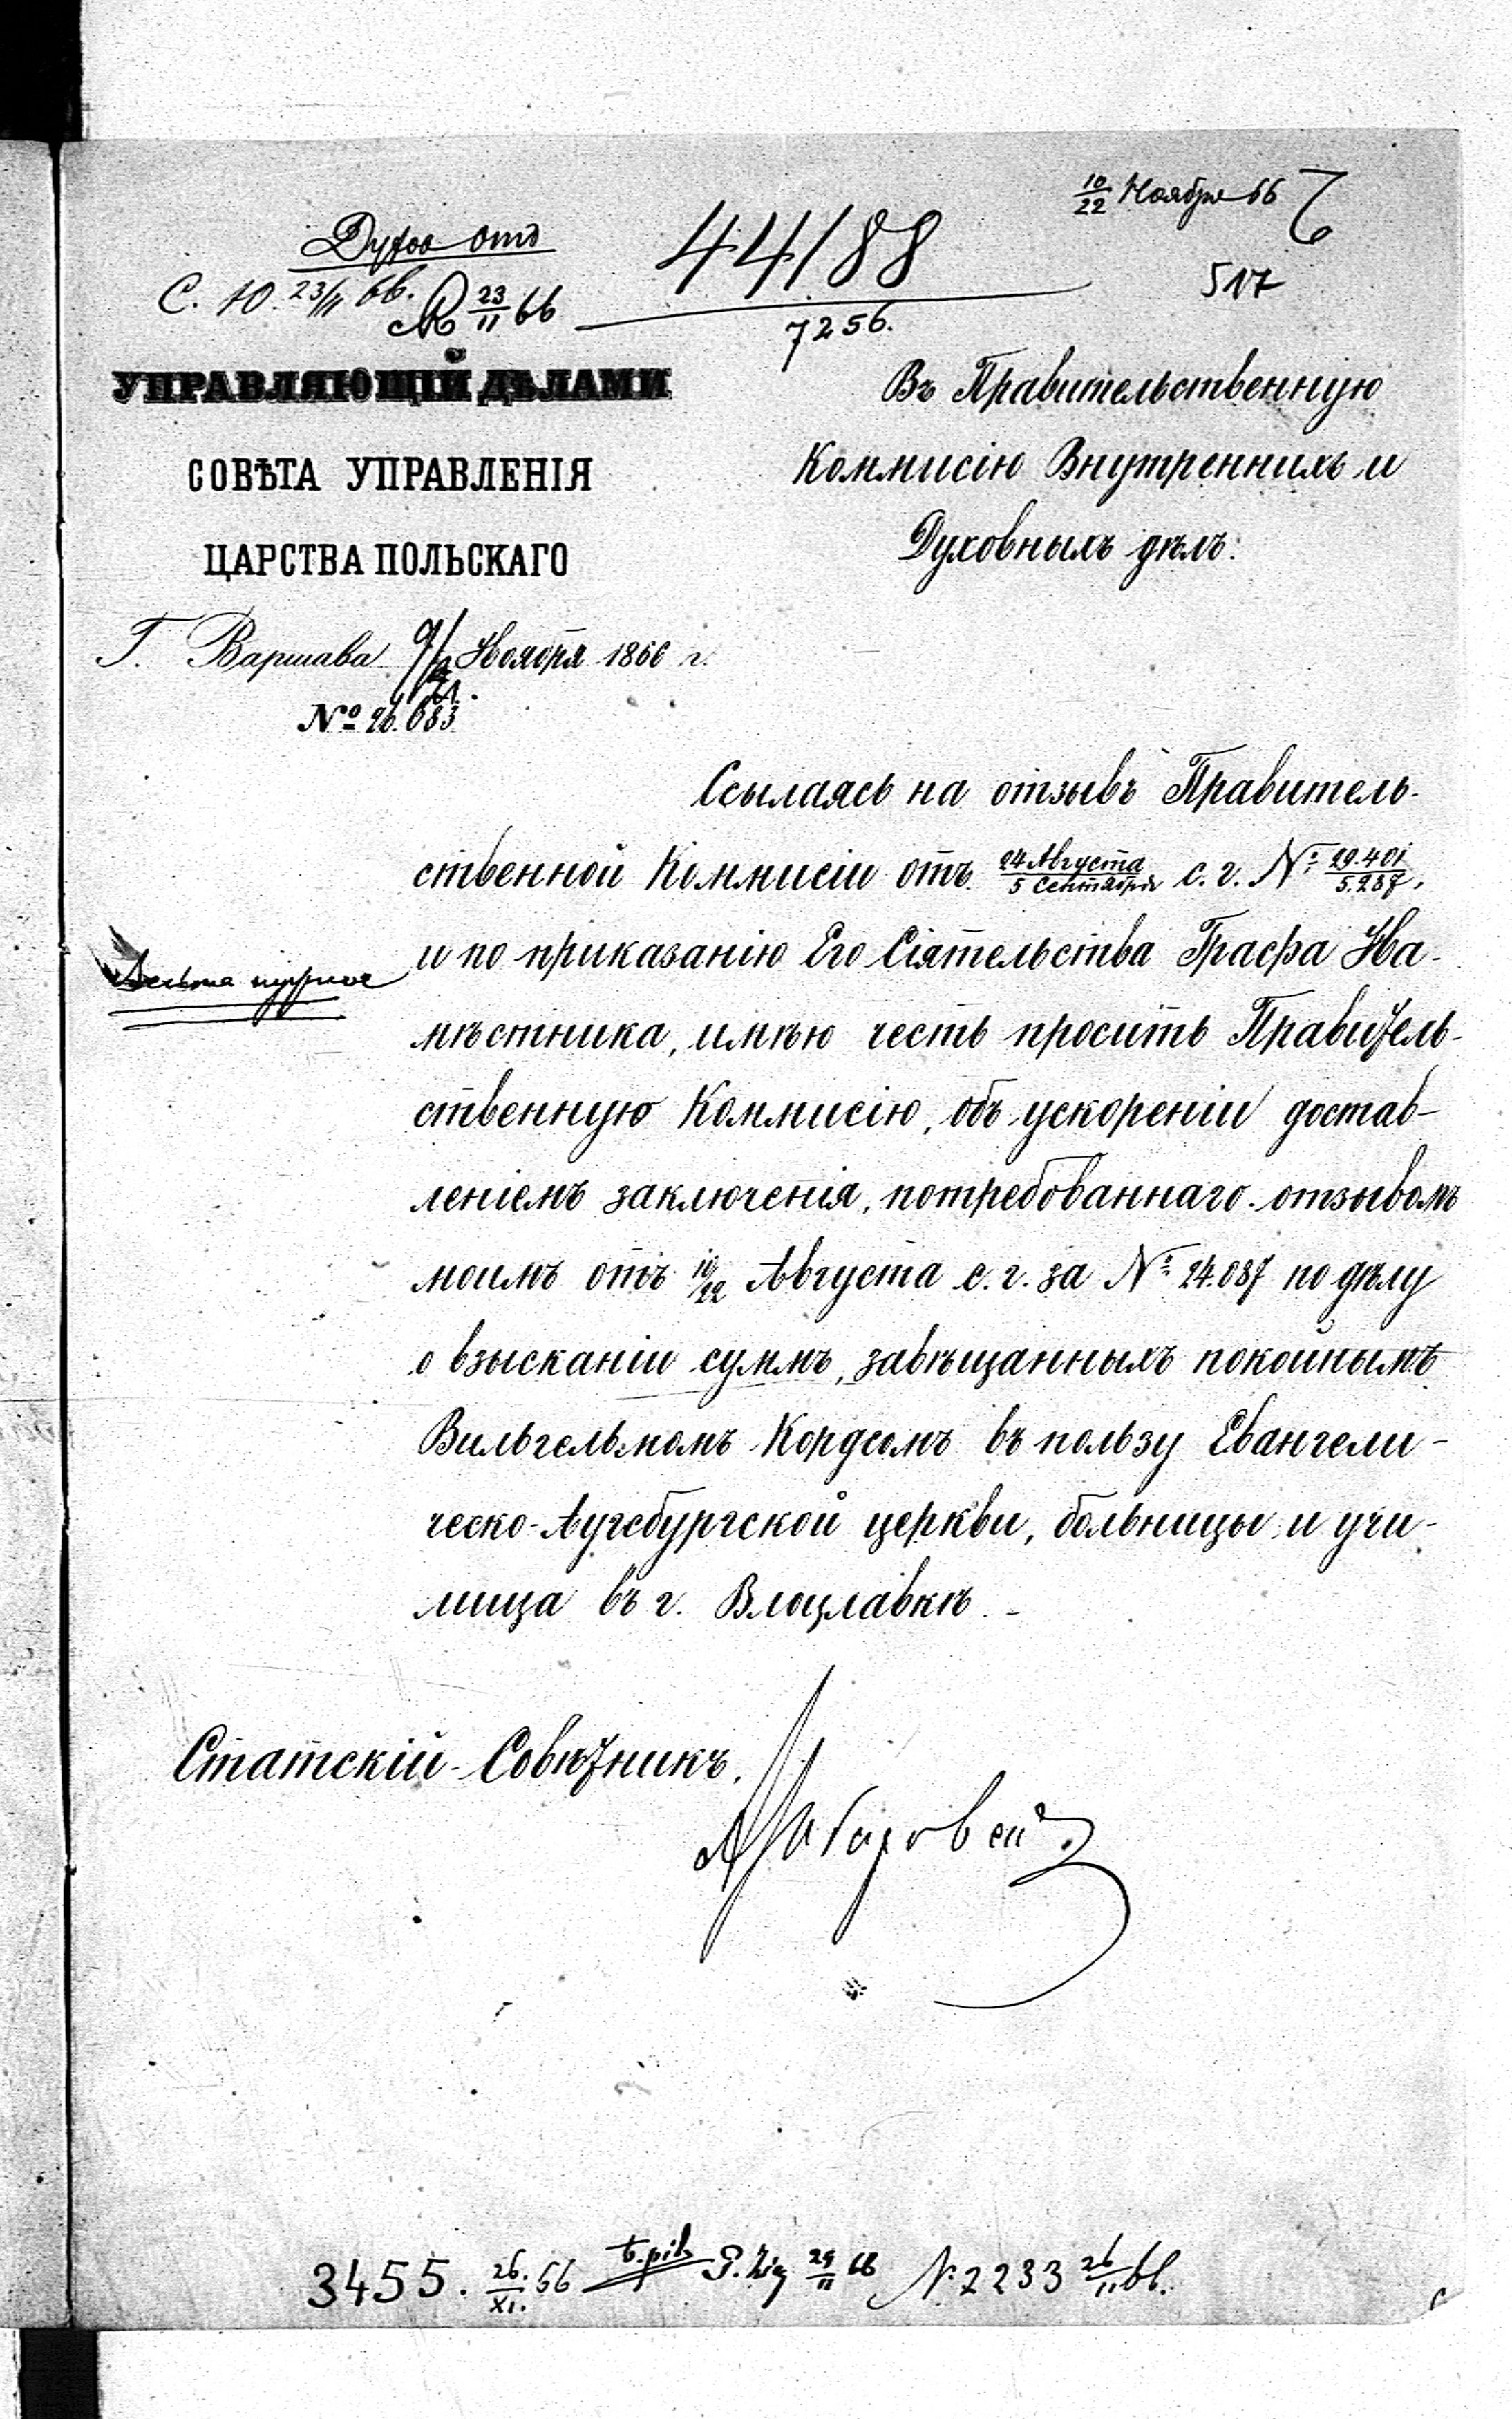 10/22 Ноября 66
517
Духов отд
С. Ю. 23/11 66.
23/11 66
44188
7256.
УПРАВЛЯЮЩІЙ ДѢЛАМИ
СОВѢТА УПРАВЛЕНІЯ
ЦАРСТВА ПОЛЬСКАГО
Г. Варшава 9/21 Ноября 1866 г.
№ 26.083
Въ Правительственную
Коммисію Внутреннихъ и
Духовныхъ дѣлъ.
Ссылаясь на отзывъ Правитель-
ственной Коммисіи отъ 24 Августа/5 Сентября с. г. № 29.401/5.237,
и по приказанію Его Сіятельства Графа На-
мѣстника, имѣю честь просить Правитель-
ственную Коммисію, объ ускореніи достав-
леніемъ заключенія, потребованнаго отзывомъ
моимъ отъ 10/22 Августа с. г. за № 24.037 по дѣлу
о взысканіи суммъ, завѣщанныхъ покойнымъ
Вильгельмомъ Кордсомъ въ пользу Евангели-
ческо-Аугсбургской церкви, больницы и учи-
лища въ г. Влоцлавкѣ.
Весьма нужное
Статскій Совѣтникъ,
3455. 26/XI. 66
66 № 2233 26/11 66.